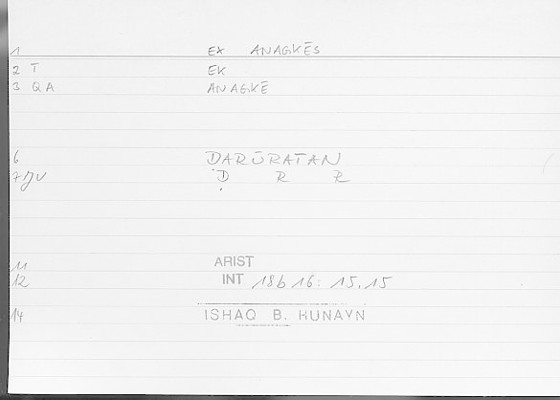 1 EX ANAGKĒS
2 T EK
3 QA ANAGKĒ
6 DARŪRATAN
7 Ḍ R R
11 ARIST
12 INT 18b 16: 15,15
14 ISHAQ B. HUNAYN